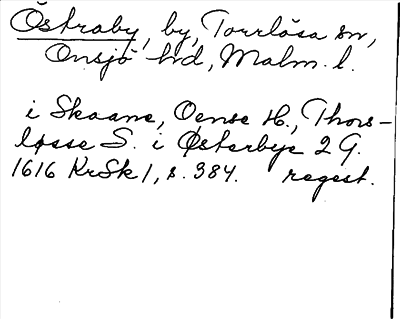 Östraby, by, Torrlösa sn,
Onsjö hd, Malm. l.
i Skaane, Oense H., Thors-
løsse S. i Østerbye 2 G.
1616 KrSk 1, s. 384. regest.